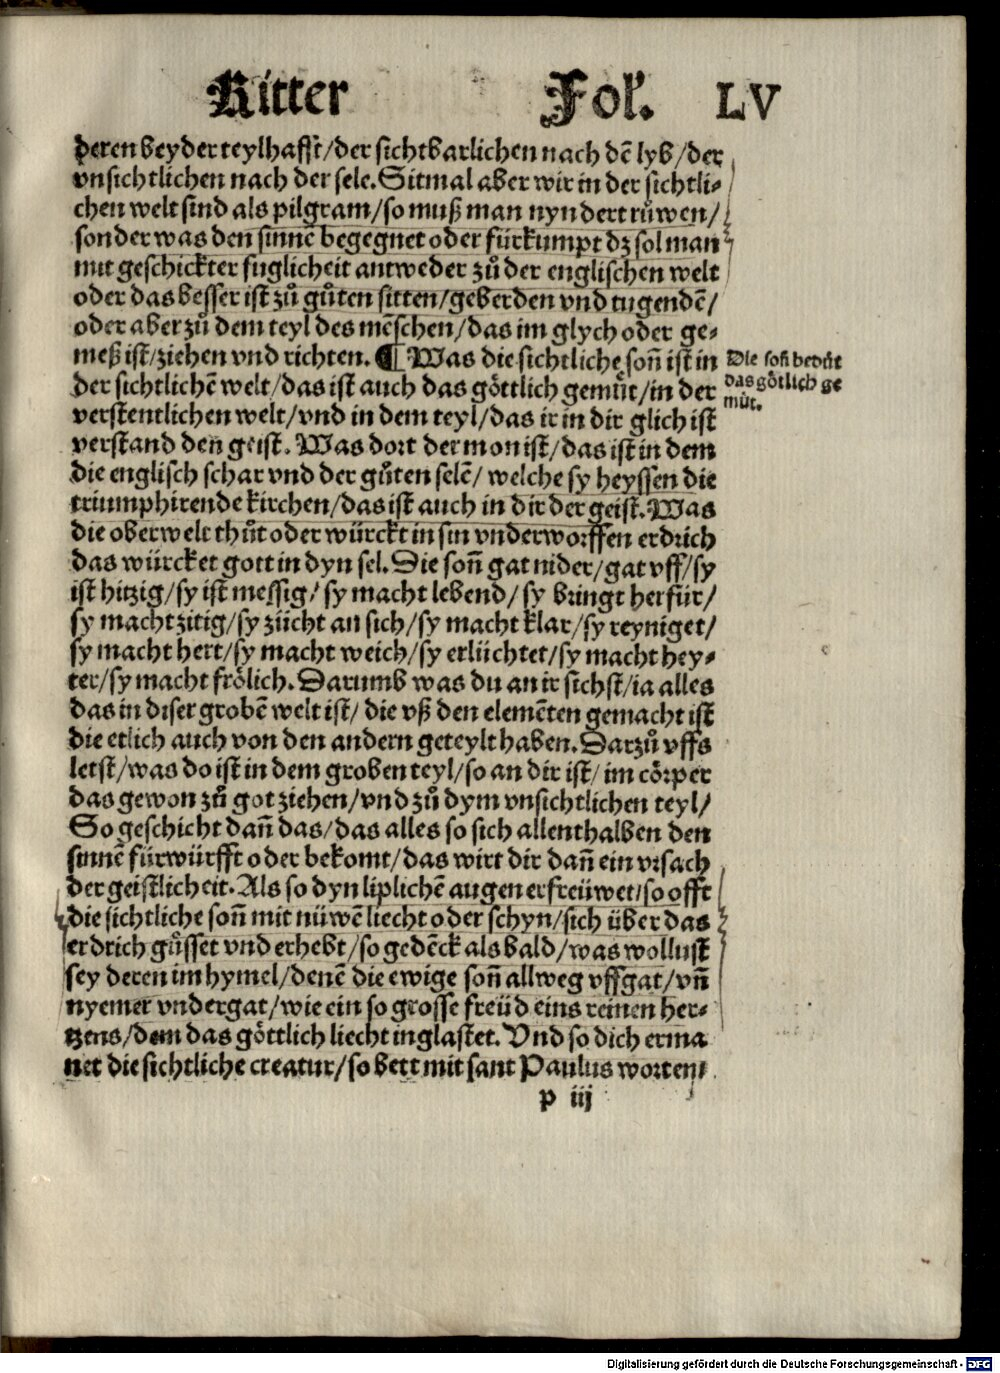 Ritter Fol. LV
deren beyder teylhafft/der sichtbarlichen nach dē lyb/der
vnsichtlichen nach der sele. Sitmal aber wir in der sichtli-
chen welt sind als pilgram/so muß man nyndert růwen/
sonder was den sinnē begegnet oder fürkumpt dz sol man
mit geschickter fuglicheit antweder zů der englischen welt
oder das besser ist zů gůten sitten/geberden vnd tugendē/
oder aber zů dem teyl des mēschen/das im glych oder ge-
meß ist/ziehen vnd richten. ¶ Was die sichtliche soñ ist in
der sichtlichē welt/das ist auch das göttlich gemůt/in der
verstentlichen welt/vnd in dem teyl/das ir in dir glich ist
verstand den geist. Was dort der mon ist/das ist in dem
die englisch schar vnd der gůten selē/ welche sy heyssen die
triumphirende kirchen/das ist auch in dir der geist. Was
die oberwelt thůt oder würckt in sin vnderworffen erdrich
das würcket gott in dyn sel. Die soñ gat nider/gat vff/sy
ist hitzig/sy ist messig/sy macht lebend/sy bringt herfür/
sy macht zitig/sy zücht an sich/sy macht klar/sy reyniget/
sy macht hert/sy macht weich/sy erlüchtet/sy macht hey-
ter/sy macht frölich. Darumb was du an ir sichst/ia alles
das in diser grobē welt ist/ die vß den elemēten gemacht ist
die etlich auch von den andern geteylt haben. Darzů vffs
letst/was do ist in dem groben teyl/so an dir ist/im cörper
das gewon zů got ziehen/vnd zů dym vnsichtlichen teyl/
So geschicht dañ das/das alles so sich allenthalben den
sinnē fürwürfft oder bekomt/das wirt dir dañ ein vrsach
der geistlicheit. Als so dyn liplichē augen erfreüwet/so offt
die sichtliche soñ mit nüwē liecht oder schyn/sich über das
erdrich gůsset vnd erhebt/so gedēck als bald/was wollust
sey deren im hymel/denē die ewige soñ allweg vffgat/vñ
nyemer vndergat/wie ein so grosse freüd eins reinen her-
tzens/dem das göttlich liecht inglastet. Vnd so dich erma
net die sichtliche creatur/so bett mit sant Paulus worten/
p iij
Die soñ bedüt
das götlich ge
můt.
Digitalisierung gefördert durch die Deutsche Forschungsgemeinschaft - DFG